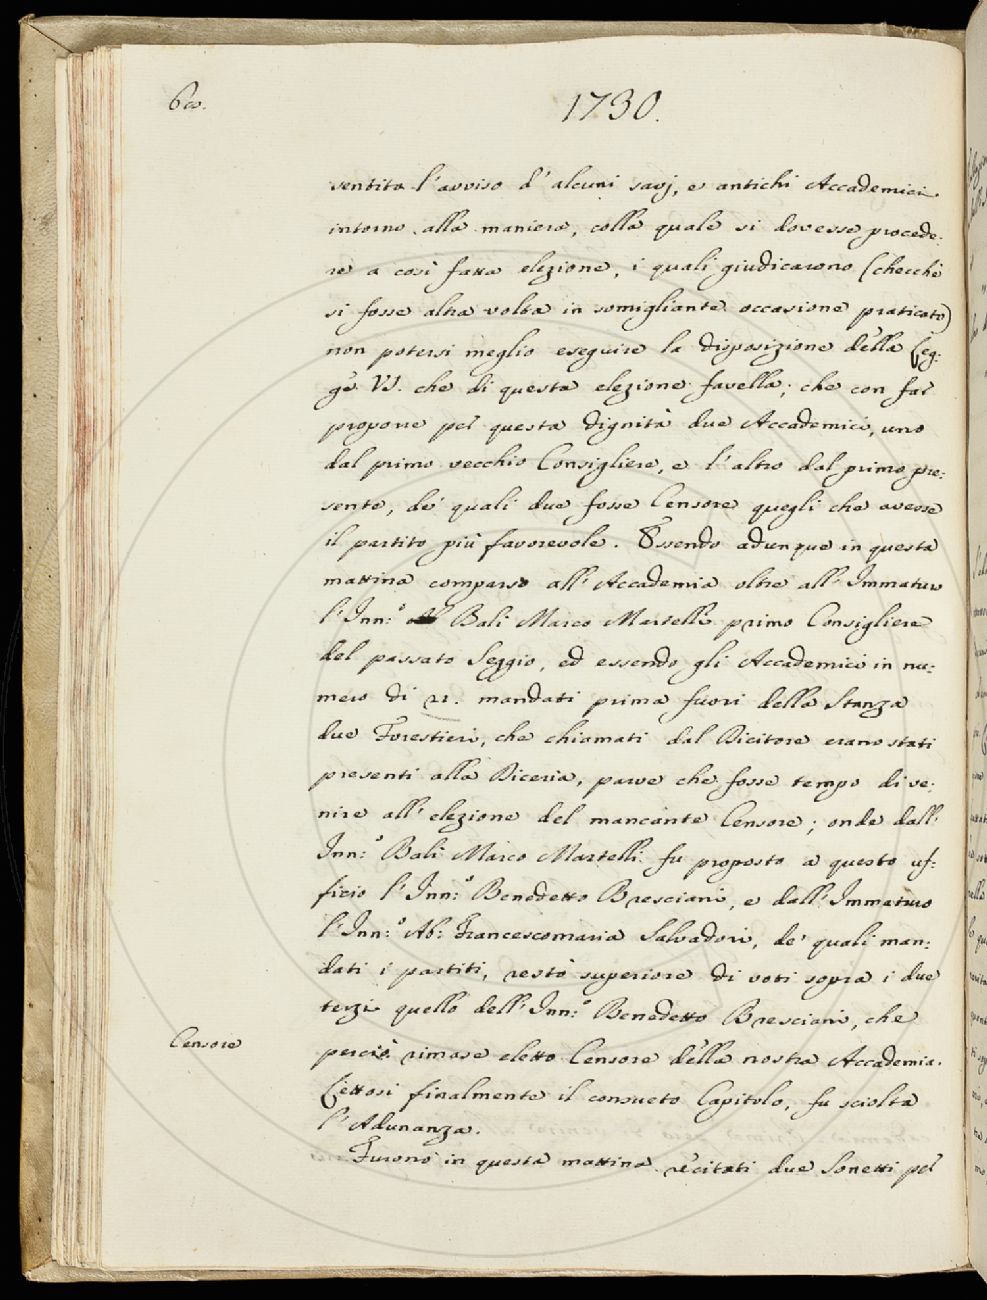 600.
1730.
sentito l'avviso d'alcuni savj, e antichi Accademici
intorno alla maniera, colla quale si dovesse procede:
re a così fatta elezione, i quali giudicarono (checchè
si fosse altra volta in somigliante occasione praticato)
non potersi meglio eseguire la disposizione della Leg:
ge VI. che di questa elezione favella; che con far
proporre per questa dignità due Accademici, uno
dal primo vecchio Consigliere, e l'altro dal primo pre:
sente, de' quali due fosse Censore quegli che avesse
il partito più favorevole. Essendo adunque in questa
mattina comparso all'Accademia oltre all'Immaturo
l'Inn:º Balì Marco Martelli primo Consigliere
del passato Seggio, ed essendo gli Accademici in nu:
mero di 21. mandati prima fuori della Stanza
due Forestieri, che chiamati dal Dicitore erano stati
presenti alla Diceria, parve che fosse tempo di ve:
nire all'elezione del mancante Censore; onde dall'
Inn:º Balì Marco Martelli fu proposto a questo uf:
ficio l'Inn:º Benedetto Bresciani, e dall'Immaturo
l'Inn:º Ab: Francescomaria Salvadori, de' quali man:
dati i partiti, restò superiore di voti sopra i due
terzi quello dell'Inn:º Benedetto Bresciani, che
Censore
perciò rimase eletto Censore della nostra Accademia.
Lettosi finalmente il consueto Capitolo, fu sciolta
l'Adunanza.
Furono in questa mattina recitati due Sonetti per